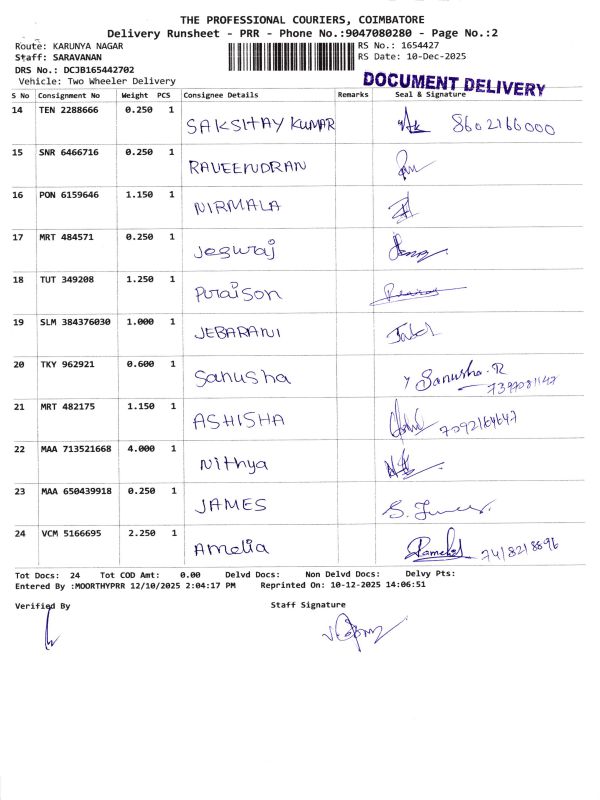 THE PROFESSIONAL COURIERS, COIMBATORE
Delivery Runsheet - PRR - Phone No.:9047080280 - Page No.:2
Route: KARUNYA NAGAR RS No.: 1654427
Staff: SARAVANAN RS Date: 10-Dec-2025
DRS No.: DCJB165442702
Vehicle: Two Wheeler Delivery
DOCUMENT DELIVERY
S No Consignment No Weight PCS Consignee Details Remarks Seal & Signature
14 TEN 2288666 0.250 1 SAKSHAY KUMAR 8602166000
15 SNR 6466716 0.250 1 RAVEENDRAN
16 PON 6159646 1.150 1 NIRMALA
17 MRT 484571 0.250 1 Jegwraj
18 TUT 349208 1.250 1 Puraison
19 SLM 384376030 1.000 1 JEBARANI
20 TKY 962921 0.600 1 Sanusha Sanusha.R
7397081147
21 MRT 482175 1.150 1 ASHISHA 7092164647
22 MAA 713521668 4.000 1 Nithya
23 MAA 650439918 0.250 1 JAMES
24 VCM 5166695 2.250 1 Amelia 7418218896
Tot Docs: 24 Tot COD Amt: 0.00 Delvd Docs: Non Delvd Docs: Delvy Pts:
Entered By :MOORTHYPRR 12/10/2025 2:04:17 PM Reprinted On: 10-12-2025 14:06:51
Verified By Staff Signature